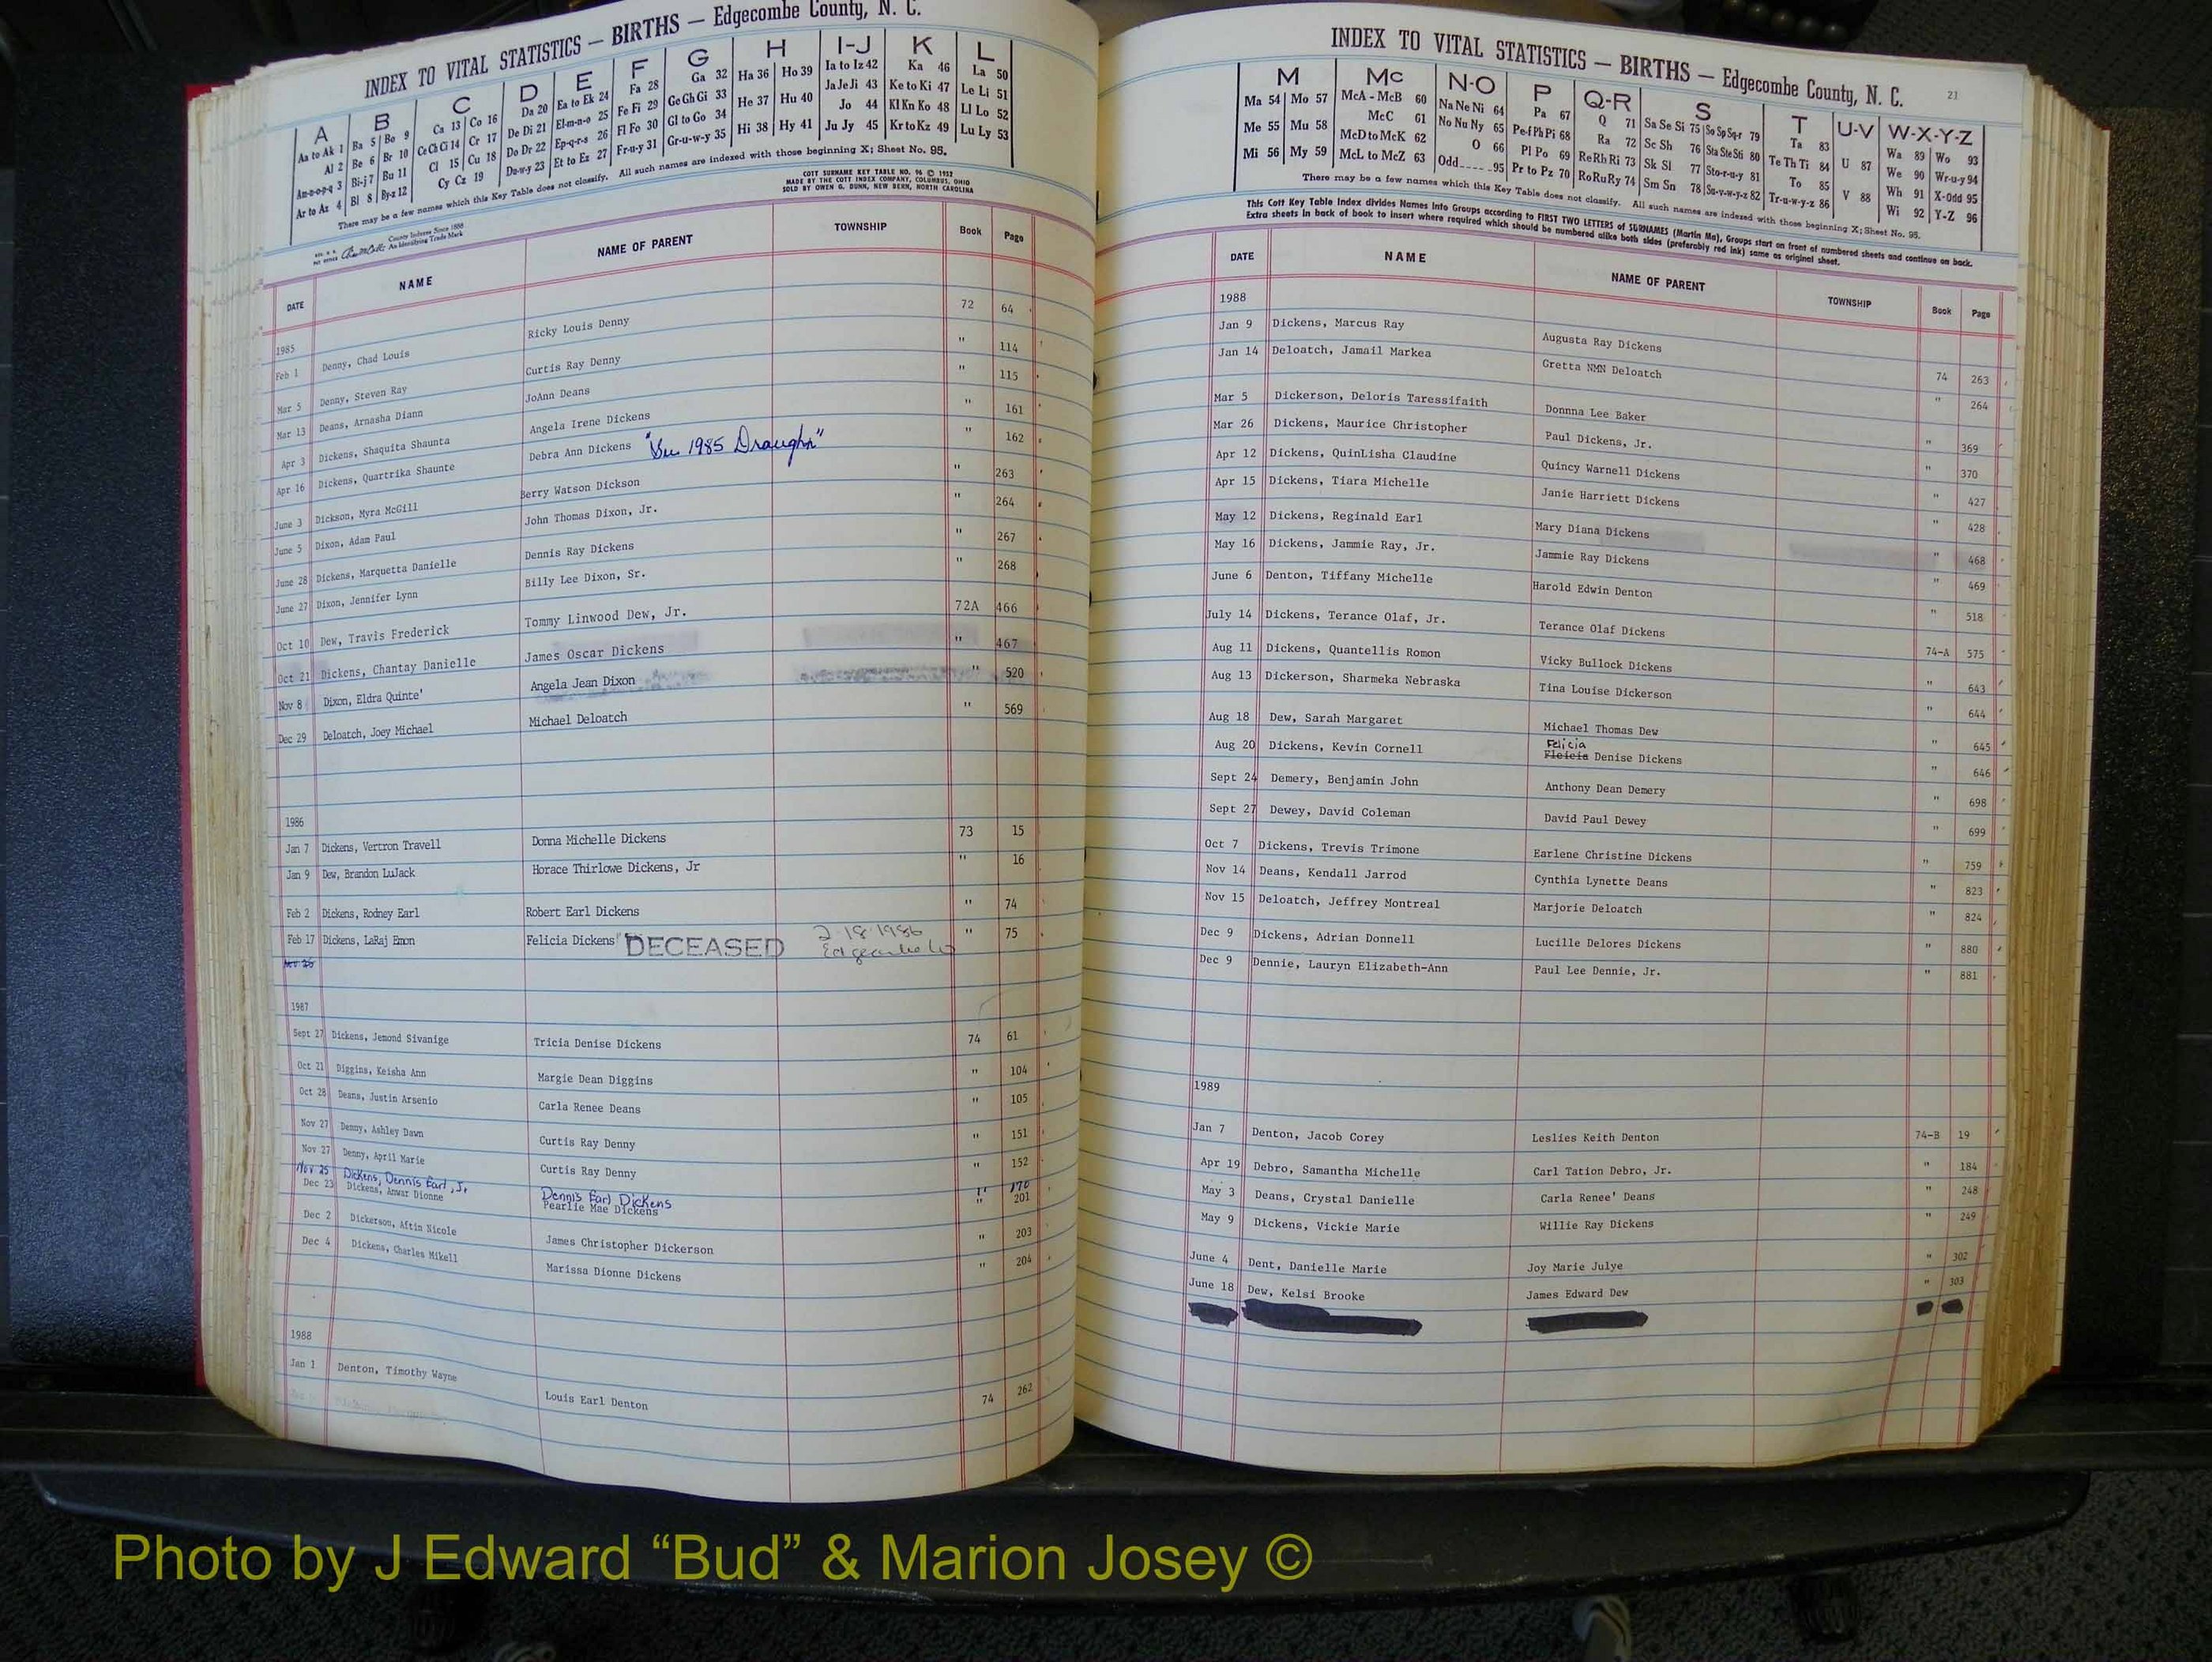 INDEX TO VITAL STATISTICS — BIRTHS — Edgecombe County, N. C.
A B C D E F G H I-J K L
Aa to Ak 1 Ba 5 Bo 9 Ca 13 Co 16 Da 20 Ea to Ek 24 Fa 28 Ga 32 Ha 36 Ho 39 Ia to Iz 42 Ka 46 La 50
Al 2 Be 6 Br 10 Ce Ch Ci 14 Cr 17 De Di 21 El-m-n-o 25 Fe Fi 29 Ge Gh Gi 33 He 37 Hu 40 Ja Je Ji 43 Ke to Ki 47 Le Li 51
Am-n-o-p-q 3 Bi-j 7 Bu 11 Cl 15 Cu 18 Do Dr 22 Ep-q-r-s 26 Fl Fo 30 Gl to Go 34 Hi 38 Hy 41 Jo 44 Kl Kn Ko 48 Ll Lo 52
Ar to Az 4 Bl 8 By-z 12 Cy Cz 19 Du-w-y 23 Et to Ez 27 Fr-u-y 31 Gr-u-w-y 35 Ju Jy 45 Kr to Kz 49 Lu Ly 53
There may be a few names which this Key Table does not classify. All such names are indexed with those beginning X; Sheet No. 95.
COTT SURNAME KEY TABLE NO. 96 © 1952
MADE BY THE COTT INDEX COMPANY, COLUMBUS, OHIO
SOLD BY OWEN G. DUNN, NEW BERN, NORTH CAROLINA
County Indexes Since 1888
An Identifying Trade Mark
DATE NAME NAME OF PARENT TOWNSHIP Book Page
1985
Feb 1 Denny, Chad Louis Ricky Louis Denny 72 64
Mar 5 Denny, Steven Ray Curtis Ray Denny " 114
Mar 13 Deans, Arnasha Diann JoAnn Deans " 115
Apr 3 Dickens, Shaquita Shaunta Angela Irene Dickens " 161
Apr 16 Dickens, Quartrika Shaunte Debra Ann Dickens "See 1985 Draughn" " 162
June 3 Dickson, Myra McGill Berry Watson Dickson " 263
June 5 Dixon, Adam Paul John Thomas Dixon, Jr. " 264
June 28 Dickens, Marquetta Danielle Dennis Ray Dickens " 267
June 27 Dixon, Jennifer Lynn Billy Lee Dixon, Sr. " 268
Oct 10 Dew, Travis Frederick Tommy Linwood Dew, Jr. 72A 466
Oct 21 Dickens, Chantay Danielle James Oscar Dickens " 467
Nov 8 Dixon, Eldra Quinte' Angela Jean Dixon " 520
Dec 29 Deloatch, Joey Michael Michael Deloatch " 569
1986
Jan 7 Dickens, Vertron Travell Donna Michelle Dickens 73 15
Jan 9 Dew, Brandon LuJack Horace Thirlowe Dickens, Jr " 16
Feb 2 Dickens, Rodney Earl Robert Earl Dickens " 74
Feb 17 Dickens, LaRaj Emon Felicia Dickens DECEASED 2-18-1986 " 75
Nov 25
1987
Sept 27 Dickens, Jemond Sivanige Tricia Denise Dickens 74 61
Oct 21 Diggins, Keisha Ann Margie Dean Diggins " 104
Oct 28 Deans, Justin Arsenio Carla Renee Deans " 105
Nov 27 Denny, Ashley Dawn Curtis Ray Denny " 151
Nov 27 Denny, April Marie Curtis Ray Denny " 152
Nov 25 Dickens, Dennis Earl, Jr. Dennis Earl Dickens " 170
Dec 23 Dickens, Anwar Dionne Pearlie Mae Dickens " 201
Dec 2 Dickerson, Aftin Nicole James Christopher Dickerson " 203
Dec 4 Dickens, Charles Mikell Marissa Dionne Dickens " 204
1988
Jan 1 Denton, Timothy Wayne Louis Earl Denton 74 262
INDEX TO VITAL STATISTICS — BIRTHS — Edgecombe County, N. C. 21
M Mc N-O P Q-R S T U-V W-X-Y-Z
Ma 54 Mo 57 McA - McB 60 Na Ne Ni 64 Pa 67 Q 71 Sa Se Si 75 So Sp Sq-r 79 Ta 83 U 87 Wa 89 Wo 93
Me 55 Mu 58 McC 61 No Nu Ny 65 Pe-f Ph Pi 68 Ra 72 Sc Sh 76 Sta Ste Sti 80 Te Th Ti 84 V 88 We 90 Wr-u-y 94
Mi 56 My 59 McD to McK 62 O 66 Pl Po 69 Re Rh Ri 73 Sk Sl 77 Sto-r-u-y 81 To 85 Wh 91 X-Odd 95
McL to McZ 63 Odd-----95 Pr to Pz 70 Ro Ru Ry 74 Sm Sn 78 Su-v-w-y-z 82 Tr-u-w-y-z 86 Wi 92 Y-Z 96
There may be a few names which this Key Table does not classify. All such names are indexed with those beginning X; Sheet No. 95.
This Cott Key Table Index divides Names into Groups according to FIRST TWO LETTERS of SURNAMES (Martin Ma), Groups start on front of numbered sheets and continue on back.
Extra sheets in back of book to insert where required which should be numbered alike both sides (preferably red ink) same as original sheet.
DATE NAME NAME OF PARENT TOWNSHIP Book Page
1988
Jan 9 Dickens, Marcus Ray Augusta Ray Dickens 74 263
Jan 14 Deloatch, Jamail Markea Gretta NMN Deloatch " 264
Mar 5 Dickerson, Deloris Taressifaith Donnna Lee Baker " 369
Mar 26 Dickens, Maurice Christopher Paul Dickens, Jr. " 370
Apr 12 Dickens, QuinLisha Claudine Quincy Warnell Dickens " 427
Apr 15 Dickens, Tiara Michelle Janie Harriett Dickens " 428
May 12 Dickens, Reginald Earl Mary Diana Dickens " 468
May 16 Dickens, Jammie Ray, Jr. Jammie Ray Dickens " 469
June 6 Denton, Tiffany Michelle Harold Edwin Denton " 518
July 14 Dickens, Terance Olaf, Jr. Terance Olaf Dickens 74-A 575
Aug 11 Dickens, Quantellis Romon Vicky Bullock Dickens " 643
Aug 13 Dickerson, Sharmeka Nebraska Tina Louise Dickerson " 644
Aug 18 Dew, Sarah Margaret Michael Thomas Dew " 645
Felicia
Aug 20 Dickens, Kevin Cornell Fleicia Denise Dickens " 646
Sept 24 Demery, Benjamin John Anthony Dean Demery " 698
Sept 27 Dewey, David Coleman David Paul Dewey " 699
Oct 7 Dickens, Trevis Trimone Earlene Christine Dickens " 759
Nov 14 Deans, Kendall Jarrod Cynthia Lynette Deans " 823
Nov 15 Deloatch, Jeffrey Montreal Marjorie Deloatch " 824
Dec 9 Dickens, Adrian Donnell Lucille Delores Dickens " 880
Dec 9 Dennie, Lauryn Elizabeth-Ann Paul Lee Dennie, Jr. " 881
1989
Jan 7 Denton, Jacob Corey Leslies Keith Denton 74-B 19
Apr 19 Debro, Samantha Michelle Carl Tation Debro, Jr. " 184
May 3 Deans, Crystal Danielle Carla Renee' Deans " 248
May 9 Dickens, Vickie Marie Willie Ray Dickens " 249
June 4 Dent, Danielle Marie Joy Marie Julye " 302
June 18 Dew, Kelsi Brooke James Edward Dew " 303
Photo by J Edward “Bud” & Marion Josey ©